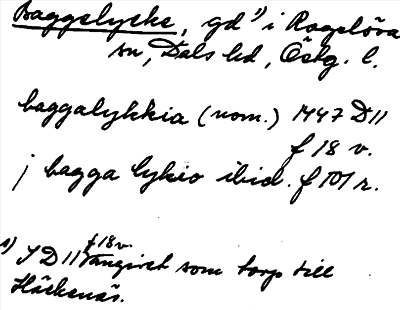 Baggelycke, gd 1) i Rogslösa
sn, Dals hd, Östg. l.
baggalykkia (nom.) 1447 D 11
f 18 v.
j bagga lykio ibid. f 101 r.
1) I D 11 f 18 v. angivet som torp till
Häckenäs.